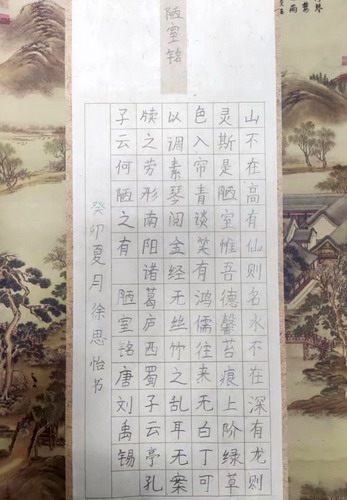 陋室铭
山不在高有仙则名水不在深有龙则
灵斯是陋室惟吾德馨苔痕上阶绿草
色入帘青谈笑有鸿儒往来无白丁可
以调素琴阅金经无丝竹之乱耳无案
牍之劳形南阳诸葛庐西蜀子云亭孔
子云何陋之有 陋室铭唐刘禹锡
癸卯夏月徐思怡书